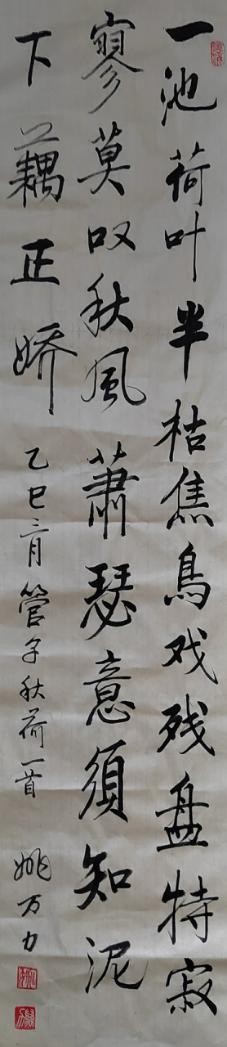 一池荷叶半枯焦鸟戏残盘特寂
寥莫叹秋风萧瑟意须知泥
下藕正娇 乙巳三月管子秋荷一首 姚万力